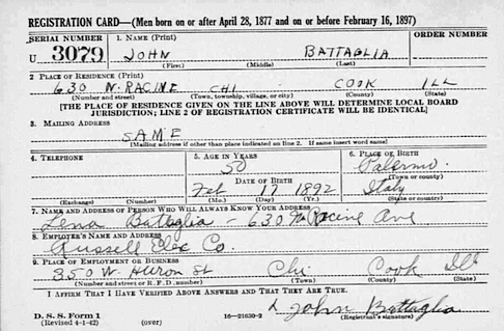 REGISTRATION CARD—(Men born on or after April 28, 1877 and on or before February 16, 1897)
SERIAL NUMBER 1. NAME (Print)
U 3079 JOHN BATTAGLIA
(First) (Middle) (Last)
2 PLACE OF RESIDENCE (Print)
630 N. RACINE CHI COOK ILL
(Number and street) (Town, township, village, or city) (County) (State)
[THE PLACE OF RESIDENCE GIVEN ON THE LINE ABOVE WILL DETERMINE LOCAL BOARD
JURISDICTION; LINE 2 OF REGISTRATION CERTIFICATE WILL BE IDENTICAL]
3. MAILING ADDRESS
SAME
[Mailing address if other than place indicated on line 2. If same insert word same]
4. TELEPHONE 5. AGE IN YEARS 6. PLACE OF BIRTH
50 Palermo
DATE OF BIRTH (Town or county)
Feb 17 1892 Italy
(Exchange) (Number) (Mo.) (Day) (Yr.) (State or country)
7. NAME AND ADDRESS OF PERSON WHO WILL ALWAYS KNOW YOUR ADDRESS
Lena Battaglia - 630 N Racine Ave
8. EMPLOYER'S NAME AND ADDRESS
Russell Elec Co.
9. PLACE OF EMPLOYMENT OR BUSINESS
350 W. Huron St Chi. Cook Ill
(Number and street or R. F. D. number) (Town) (County) (State)
I AFFIRM THAT I HAVE VERIFIED ABOVE ANSWERS AND THAT THEY ARE TRUE.
John Battaglia
D. S. S. Form 1 (Registrant's signature)
(Revised 4-1-42) (over) 16—21630-2